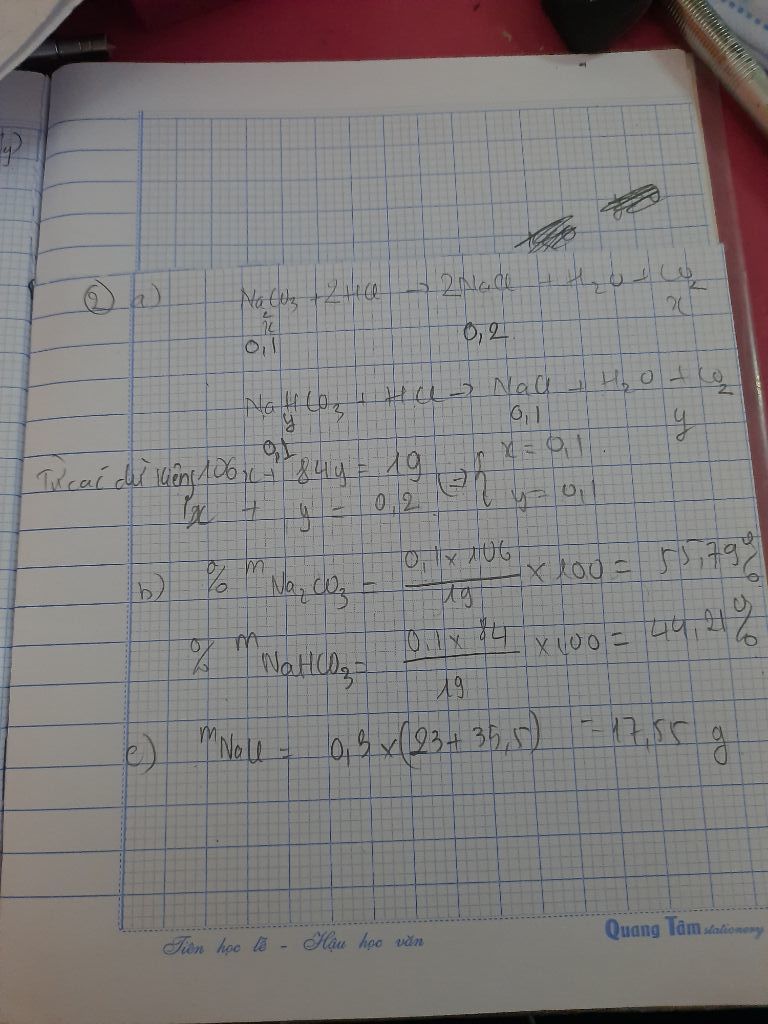 y)
② a) Na2CO3 + 2HCl → 2NaCl + H2O + CO2
x x
0,1 0,2
NaHCO3 + HCl → NaCl + H2O + CO2
y 0,1 y
0,1
Từ các dữ kiện { 106x + 84y = 19 (=) { x = 0,1
x + y = 0,2 y = 0,1
b) % m Na2CO3 = 0,1 x 106 / 19 x 100 = 55,79%
% m NaHCO3 = 0,1 x 84 / 19 x 100 = 44,21%
c) mNaCl = 0,3 x (23 + 35,5) = 17,55 g
Tiên học lễ - Hậu học văn
Quang Tâm stationery